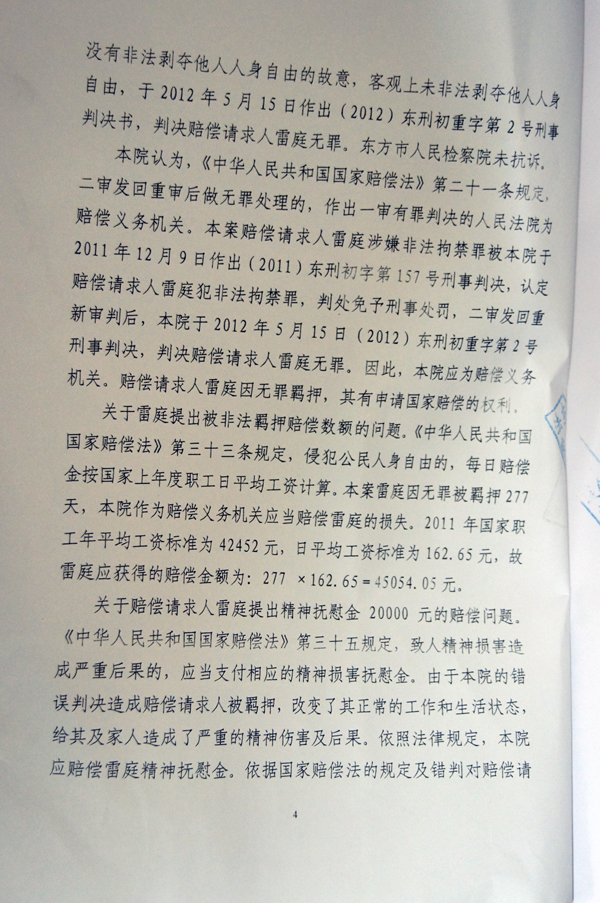 没有非法剥夺他人人身自由的故意，客观上未非法剥夺他人人身
自由，于 2012 年 5 月 15 日作出（2012）东刑初重字第 2 号刑事
判决书，判决赔偿请求人雷庭无罪。东方市人民检察院未抗诉。
本院认为，《中华人民共和国国家赔偿法》第二十一条规定，
二审发回重审后做无罪处理的，作出一审有罪判决的人民法院为
赔偿义务机关。本案赔偿请求人雷庭涉嫌非法拘禁罪被本院于
2011 年 12 月 9 日作出（2011）东刑初字第 157 号刑事判决，认定
赔偿请求人雷庭犯非法拘禁罪，判处免予刑事处罚，二审发回重
新审判后，本院于 2012 年 5 月 15 日（2012）东刑初重字第 2 号
刑事判决，判决赔偿请求人雷庭无罪。因此，本院应为赔偿义务
机关。赔偿请求人雷庭因无罪羁押，其有申请国家赔偿的权利。
关于雷庭提出被非法羁押赔偿数额的问题。《中华人民共和国
国家赔偿法》第三十三条规定，侵犯公民人身自由的，每日赔偿
金按国家上年度职工日平均工资计算。本案雷庭因无罪被羁押 277
天，本院作为赔偿义务机关应当赔偿雷庭的损失。2011 年国家职
工年平均工资标准为 42452 元，日平均工资标准为 162.65 元，故
雷庭应获得的赔偿金额为：277 ×162.65=45054.05 元。
关于赔偿请求人雷庭提出精神抚慰金 20000 元的赔偿问题。
《中华人民共和国国家赔偿法》第三十五规定，致人精神损害造
成严重后果的，应当支付相应的精神损害抚慰金。由于本院的错
误判决造成赔偿请求人被羁押，改变了其正常的工作和生活状态，
给其及家人造成了严重的精神伤害及后果。依照法律规定，本院
应赔偿雷庭精神抚慰金。依据国家赔偿法的规定及错判对赔偿请
4